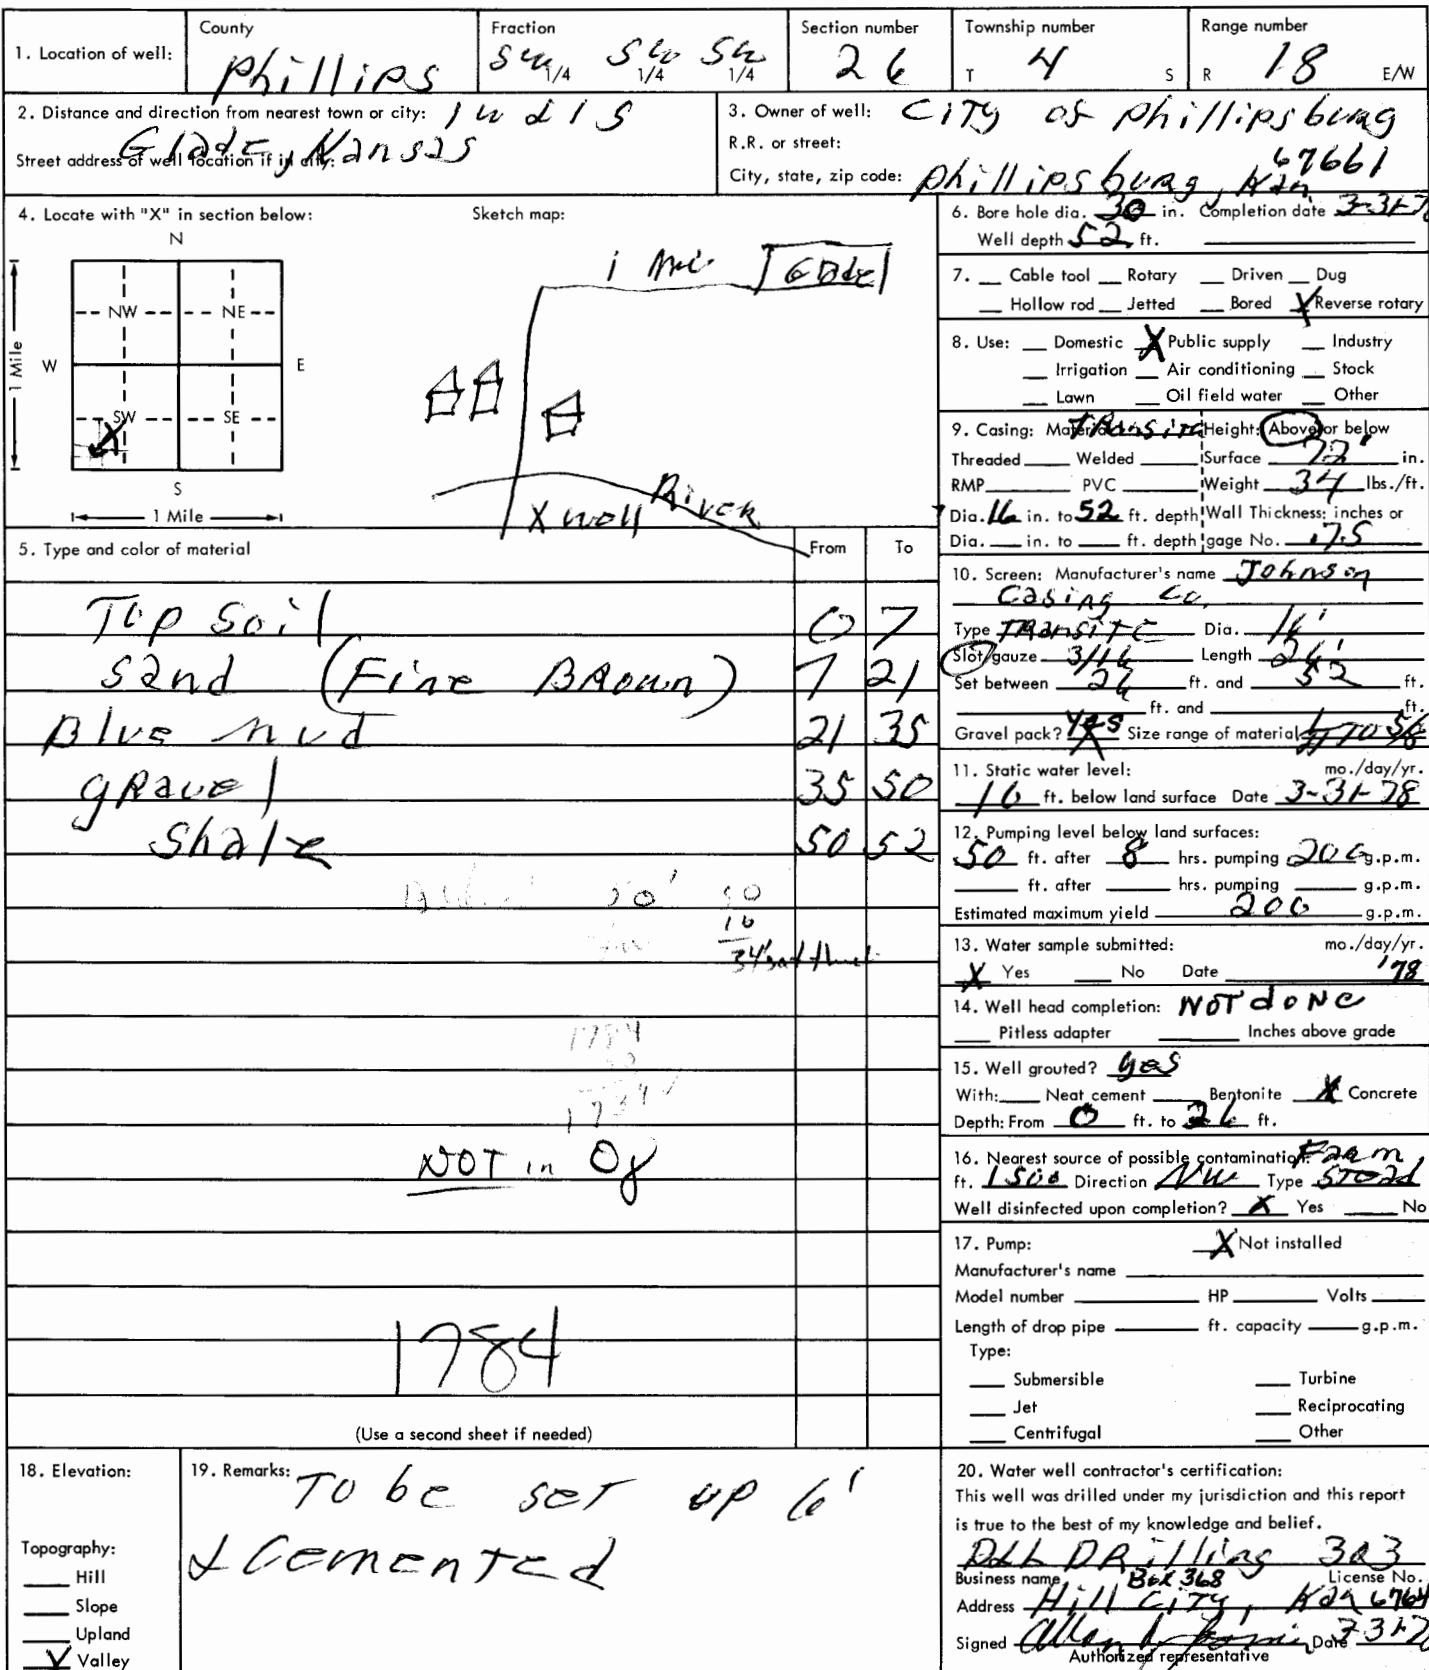 County Fraction Section number Township number Range number
1. Location of well: Phillips SW 1/4 SW 1/4 SW 1/4 26 T 4 S R 18 E/W
2. Distance and direction from nearest town or city: 1 w d 1 S
Glade, Kansas
Street address of well location if in city:
3. Owner of well: City of Phillipsburg
R.R. or street:
67661
City, state, zip code: Phillipsburg, Kan
4. Locate with "X" in section below: Sketch map:
N
NW NE
W E
SW SE
X
S
1 Mile
1 Mile
1 mi Glade
River
X well
5. Type and color of material From To
Top Soil 0 7
Sand (Fine Brown) 7 21
Blue mud 21 35
gravel 35 50
Shale 50 52
50' 50
16
34' sat
1784
NOT in Og
1784
(Use a second sheet if needed)
6. Bore hole dia. 30 in. Completion date 3-31-78
Well depth 52 ft.
7. Cable tool Rotary Driven Dug
Hollow rod Jetted Bored X Reverse rotary
8. Use: Domestic X Public supply Industry
Irrigation Air conditioning Stock
Lawn Oil field water Other
9. Casing: Material Transite Height: Above or below
Threaded Welded Surface 72" in.
RMP PVC Weight 34 lbs./ft.
Dia. 16 in. to 52 ft. depth Wall Thickness: inches or
Dia. in. to ft. depth gage No. .75
10. Screen: Manufacturer's name Johnson
Casing Co.
Type Transite Dia. 16"
Slot/gauze 3/16 Length 26'
Set between 26 ft. and 52 ft.
ft. and ft.
Gravel pack? Yes X Size range of material
11. Static water level: mo./day/yr.
16 ft. below land surface Date 3-31-78
12. Pumping level below land surfaces:
50 ft. after 8 hrs. pumping 200 g.p.m.
ft. after hrs. pumping g.p.m.
Estimated maximum yield 200 g.p.m.
13. Water sample submitted: mo./day/yr.
X Yes No Date '78
14. Well head completion: NOT dONe
Pitless adapter Inches above grade
15. Well grouted? yes
With: Neat cement Bentonite X Concrete
Depth: From 0 ft. to 26 ft.
16. Nearest source of possible contamination: Farm
ft. 1500 Direction NW Type Stead
Well disinfected upon completion? X Yes No
17. Pump: X Not installed
Manufacturer's name
Model number HP Volts
Length of drop pipe ft. capacity g.p.m.
Type:
Submersible Turbine
Jet Reciprocating
Centrifugal Other
18. Elevation:
Topography:
Hill
Slope
Upland
X Valley
19. Remarks: To be set up 6'
& Cemented
20. Water well contractor's certification:
This well was drilled under my jurisdiction and this report
is true to the best of my knowledge and belief.
Drilling 303
Business name Box 368 License No.
Address Hill City, Kan
Signed Allen Date 3-31-78
Authorized representative